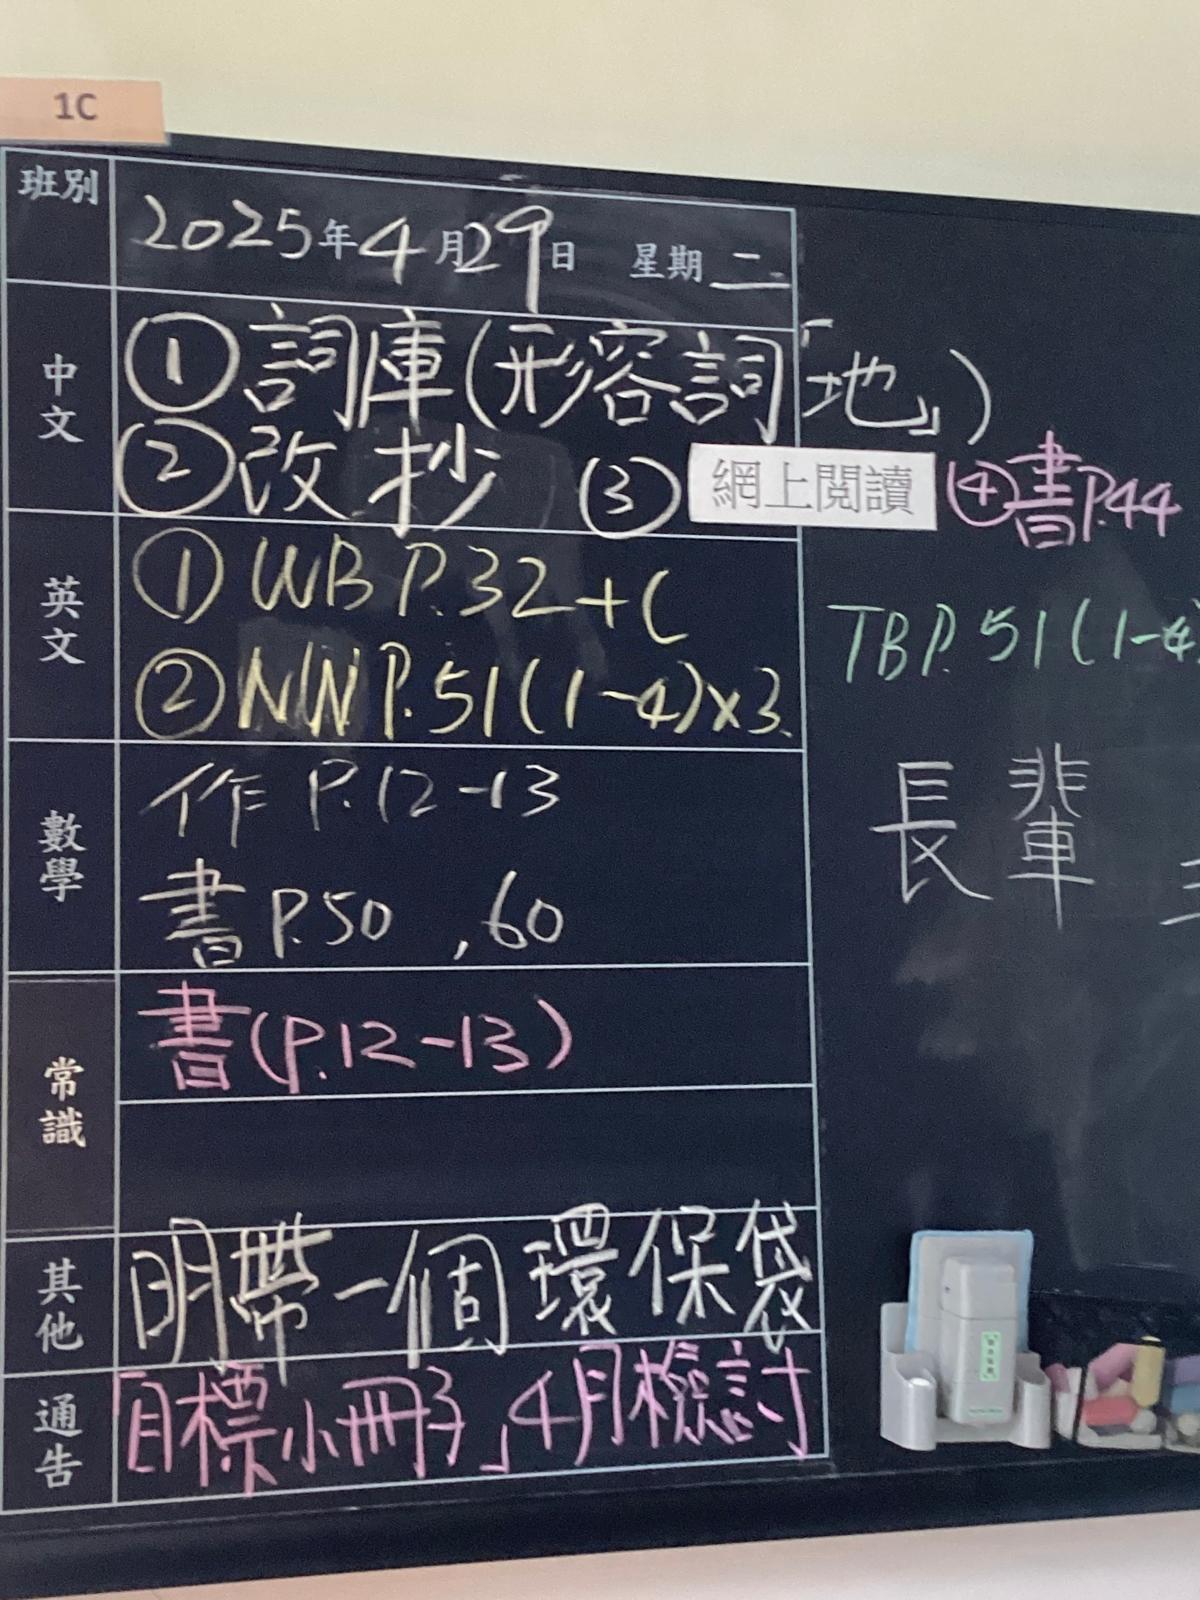 1C
班別
2025年4月29日 星期二
中文
①詞庫(形容詞「地」)
②改抄 ③網上閱讀 ④書P.44
英文
①WB P.32+C
②NN P.51(1-4)x3.
TB P.51(1-4)
數學
作 P.12-13
書 P.50 , 60
長輩
常識
書(P.12-13)
其他
明帶一個環保袋
通告
「目標小冊子」4月檢討